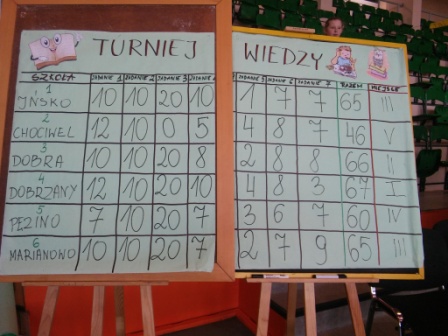 TURNIEJ WIEDZY
SZKOŁA ZADANIE 1 ZADANIE 2 ZADANIE 3 ZADANIE 4 ZADANIE 5 ZADANIE 6 ZADANIE 7 RAZEM MIEJSCE
1 IŃSKO 10 10 20 10 1 7 7 65 III
2 CHOCIWEL 12 10 0 5 4 8 7 46 V
3 DOBRA 10 10 20 8 2 8 8 66 II
4 DOBRZANY 12 10 20 10 4 8 3 67 I
5 PEZINO 7 10 20 7 3 6 7 60 IV
6 MARIANOWO 10 10 20 7 2 7 9 65 III